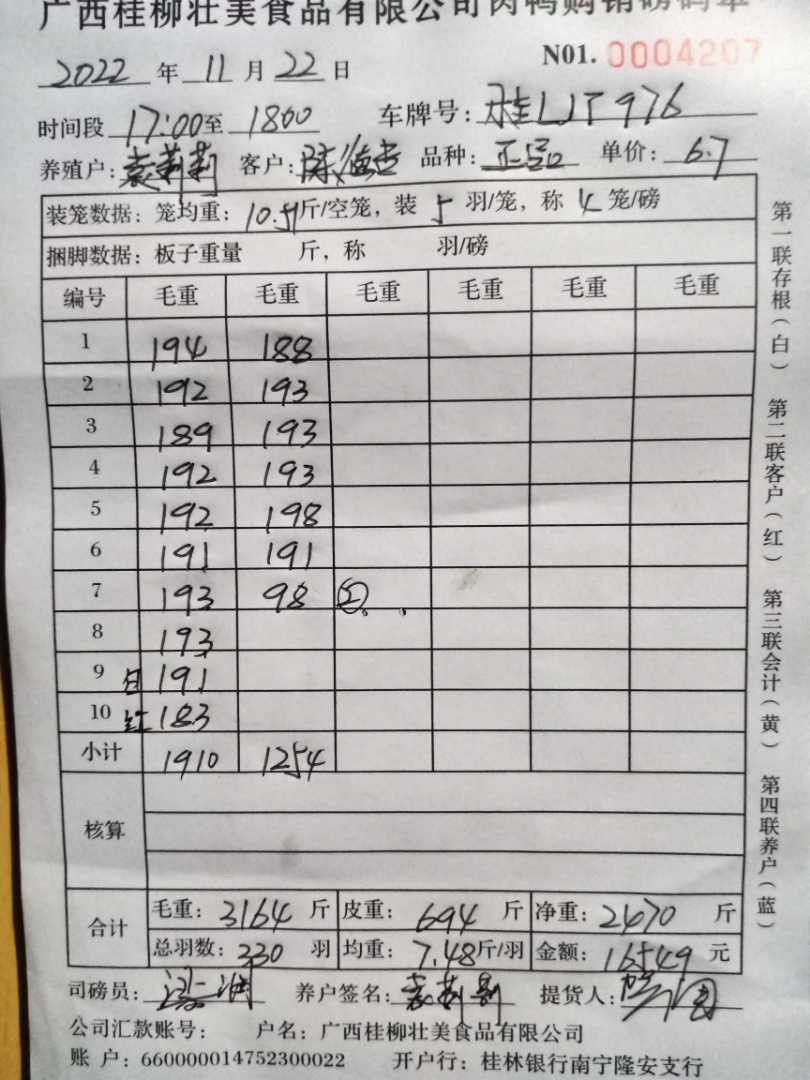 广西桂柳壮美食品有限公司肉鸭购销磅码单
2022 年 11 月 22 日 N01. 0004207
时间段 17:00至 1800 车牌号: 桂LJT976
养殖户: 袁莉莉 客户: 品种: 正品 单价: 6.7
装笼数据: 笼均重: 10.51斤/空笼, 装 5 羽/笼, 称 4 笼/磅
捆脚数据: 板子重量 斤, 称 羽/磅
编号 毛重 毛重 毛重 毛重 毛重 毛重
1 194 188
2 192 193
3 189 193
4 192 193
5 192 198
6 191 191
7 193 98
8 193
9 白 191
10 红 183
小计 1910 1254
核算
合计 毛重: 3164 斤 皮重: 694 斤 净重: 2470 斤
总羽数: 330 羽 均重: 7.48斤/羽 金额: 16549 元
司磅员: 养户签名: 袁莉莉 提货人:
公司汇款账号: 户名: 广西桂柳壮美食品有限公司
账 户: 660000014752300022 开户行: 桂林银行南宁隆安支行
第一联存根(白) 第二联客户(红) 第三联会计(黄) 第四联养户(蓝)